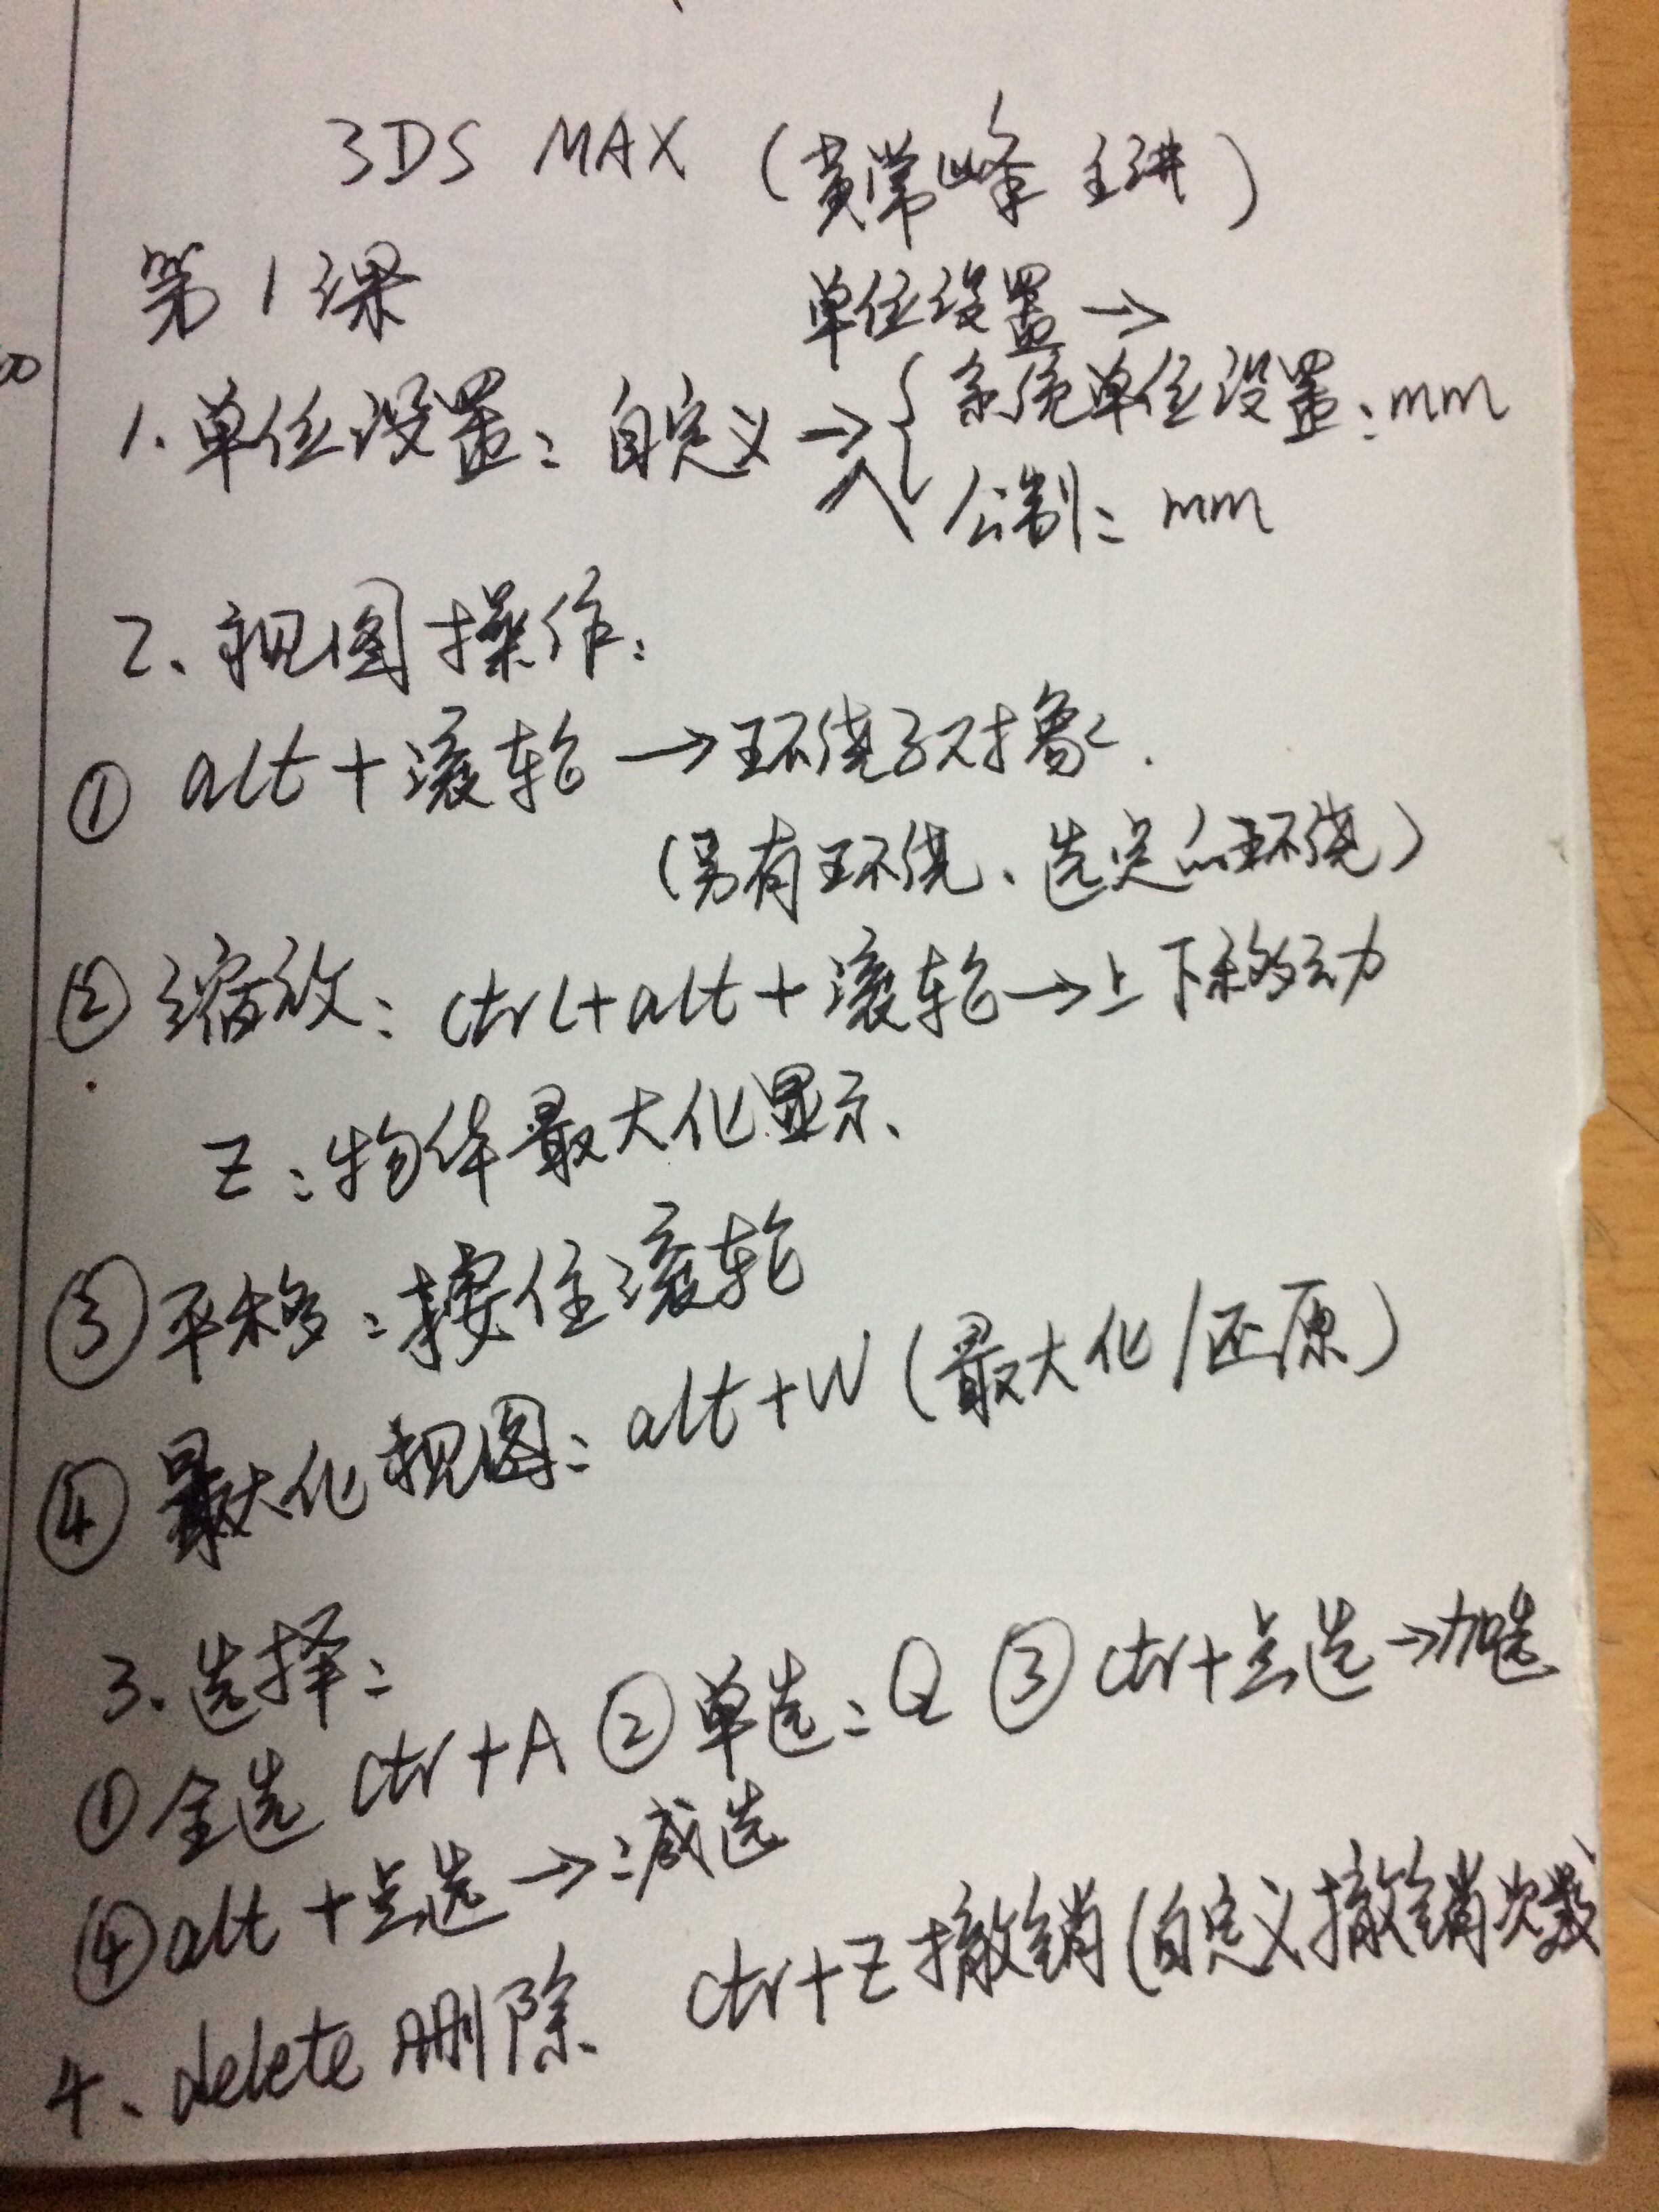 3DS MAX (黄常峰 主讲)
第1课
单位设置→
1.单位设置: 自定义→{系统单位设置:mm
公制: mm
2、视图操作:
① alt+滚轮→环绕子对象.
(另有环绕、选定的环绕)
② 缩放: ctrl+alt+滚轮→上下移动
Z:物体最大化显示、
③ 平移:按住滚轮
④ 最大化视图: alt+W(最大化/还原)
3.选择:
①全选 ctr+A ②单选:Q ③ ctr+点选→加选
④alt+点选→减选
4、delete删除 ctr+Z撤销(自定义撤销次数)